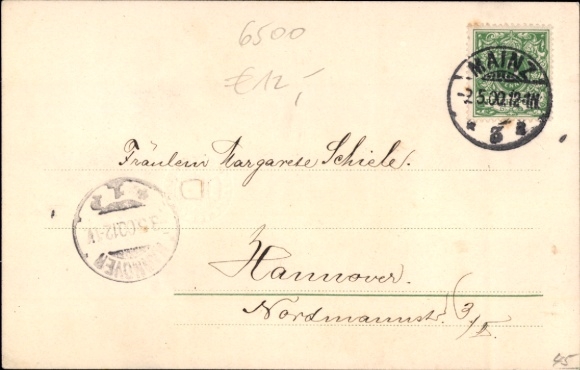 6500
€ 12,-
MAINZ
2.5.00.12-1N.
* 3 *
Fräulein Margarete Schiele.
3.5.00.12-1N
HANNOVER
Hannover.
Nordmannstr. 3/II.
45